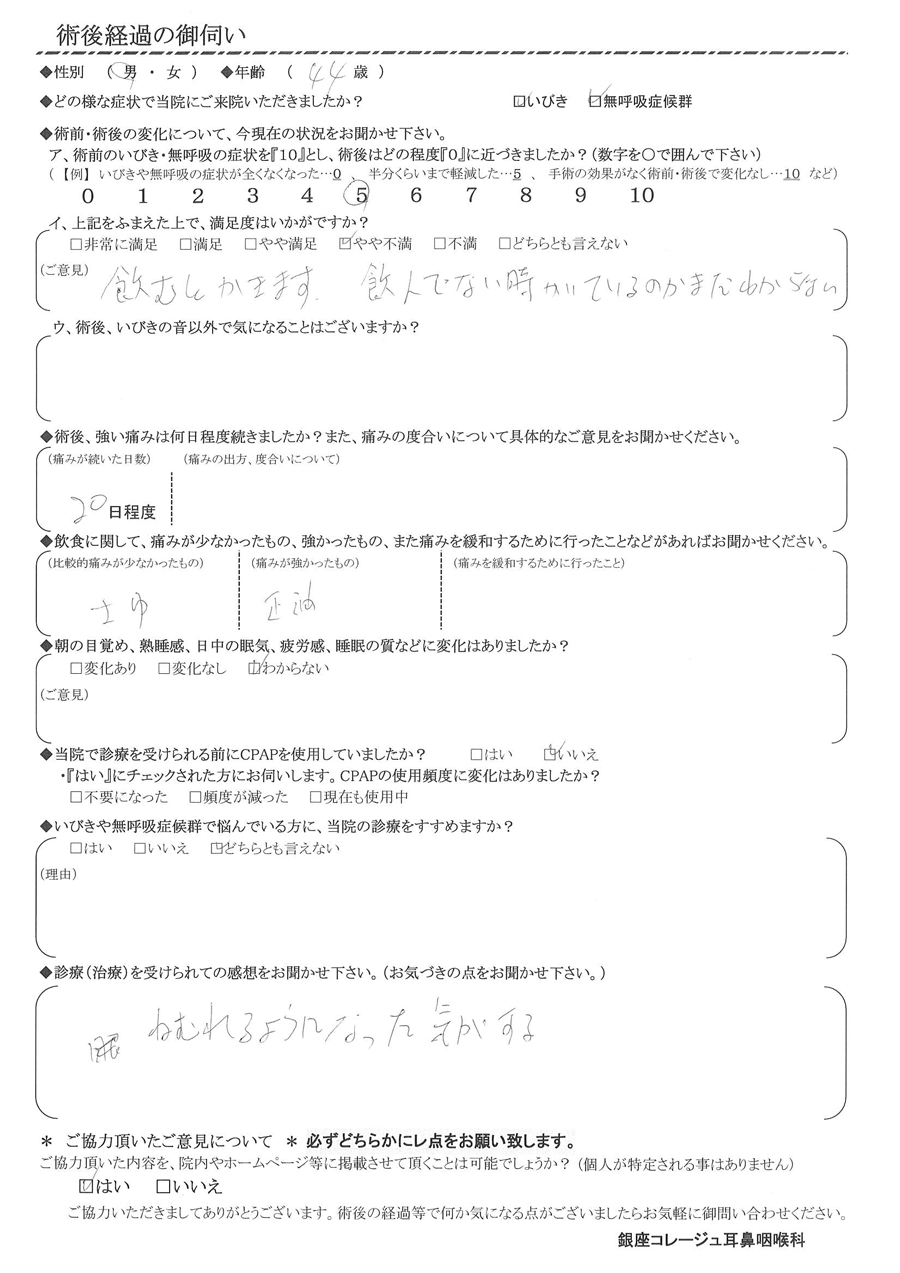 術後経過の御伺い
◆性別 （ 男 ・ 女 ） ◆年齢 （ 44 歳 ）
◆どの様な症状で当院にご来院いただきましたか？ ☑いびき ☑無呼吸症候群
◆術前・術後の変化について、今現在の状況をお聞かせ下さい。
ア、術前のいびき・無呼吸の症状を『10』とし、術後はどの程度『0』に近づきましたか？（数字を〇で囲んで下さい）
（ 【例】 いびきや無呼吸の症状が全くなくなった…0 、 半分くらいまで軽減した…5 、 手術の効果がなく術前・術後で変化なし…10 など）
0 1 2 3 4 5 6 7 8 9 10
イ、上記をふまえた上で、満足度はいかがですか？
□非常に満足 □満足 □やや満足 ☑やや不満 □不満 □どちらとも言えない
（ご意見） 飲むとかきます. 飲んでない時かいているのかまだわからない
ウ、術後、いびきの音以外で気になることはございますか？
◆術後、強い痛みは何日程度続きましたか？また、痛みの度合いについて具体的なご意見をお聞かせください。
（痛みが続いた日数） （痛みの出方、度合いについて）
20日程度
◆飲食に関して、痛みが少なかったもの、強かったもの、また痛みを緩和するために行ったことなどがあればお聞かせください。
（比較的痛みが少なかったもの） （痛みが強かったもの） （痛みを緩和するために行ったこと）
◆朝の目覚め、熟睡感、日中の眠気、疲労感、睡眠の質などに変化はありましたか？
□変化あり □変化なし ☑わからない
（ご意見）
◆当院で診療を受けられる前にCPAPを使用していましたか？ □はい ☑いいえ
・『はい』にチェックされた方にお伺いします。CPAPの使用頻度に変化はありましたか？
□不要になった □頻度が減った □現在も使用中
◆いびきや無呼吸症候群で悩んでいる方に、当院の診療をすすめますか？
□はい □いいえ ☑どちらとも言えない
（理由）
◆診療（治療）を受けられての感想をお聞かせ下さい。（お気づきの点をお聞かせ下さい。）
ねむれるようになった気がする
＊ ご協力頂いたご意見について ＊ 必ずどちらかにレ点をお願い致します。
ご協力頂いた内容を、院内やホームページ等に掲載させて頂くことは可能でしょうか？（個人が特定される事はありません）
☑はい □いいえ
ご協力いただきましてありがとうございます。術後の経過等で何か気になる点がございましたらお気軽に御問い合わせください。
銀座コレージュ耳鼻咽喉科